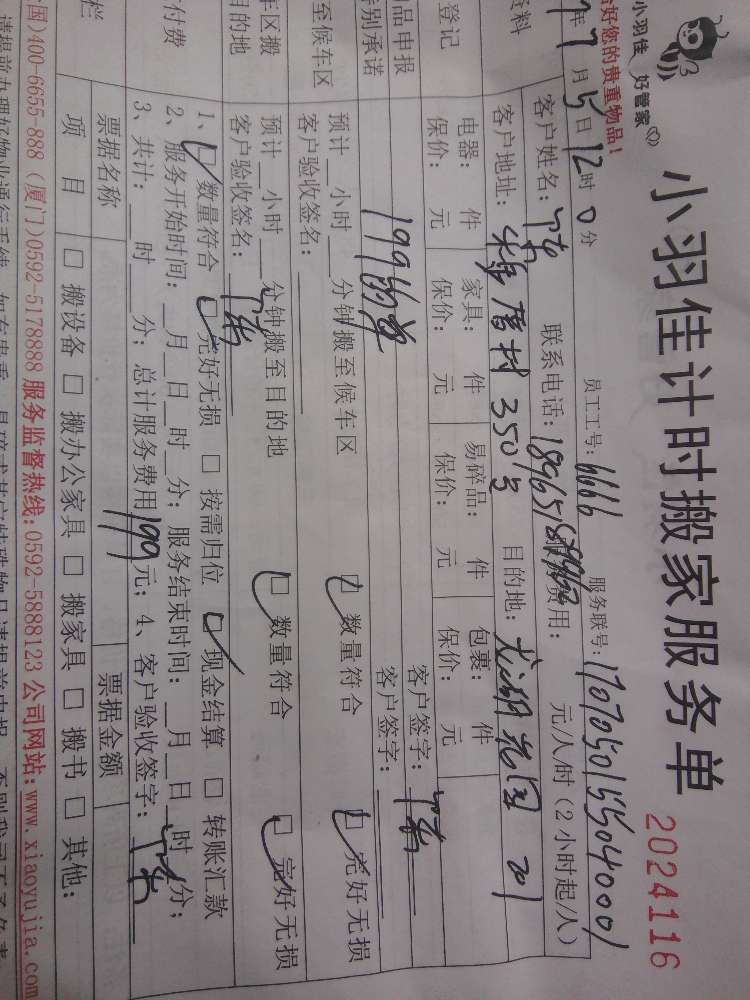 小羽佳 好管家
小羽佳计时搬家服务单
2024116
好您的贵重物品!
年7月5日12时0分 员工工号:6666 服务联号:1707050155040001
资料
客户姓名: 联系电话: 费用: 元/人/时(2小时起/人)
客户地址: 350号 目的地: 龙湖花园 701
登记
电器: 件 家具: 件 易碎品: 件 包裹: 件
保价: 元 保价: 元 保价: 元 保价: 元
品申报
客户签字:
特别承诺
199的单
客户签字:
至候车区
预计__小时__分钟搬至候车区 数量符合 完好无损
客户验收签名:
车区搬
目的地
预计__小时__分钟搬至目的地 数量符合 完好无损
客户验收签名:
付费
1、 数量符合 完好无损 □ 按需归位 现金结算 □ 转账汇款
2、服务开始时间:__月__日__时__分;服务结束时间:__月__日__时__分;
3、共计:__时__分;总计服务费用199元;4、客户验收签字:
栏
票据名称 票据金额
项 目 □ 搬设备 □ 搬办公家具 □ 搬家具 □ 搬书 □ 其他:
国)400-6655-888 (厦门)0592-5178888 服务监督热线:0592-5888123 公司网站:www.xiaoyujia.com